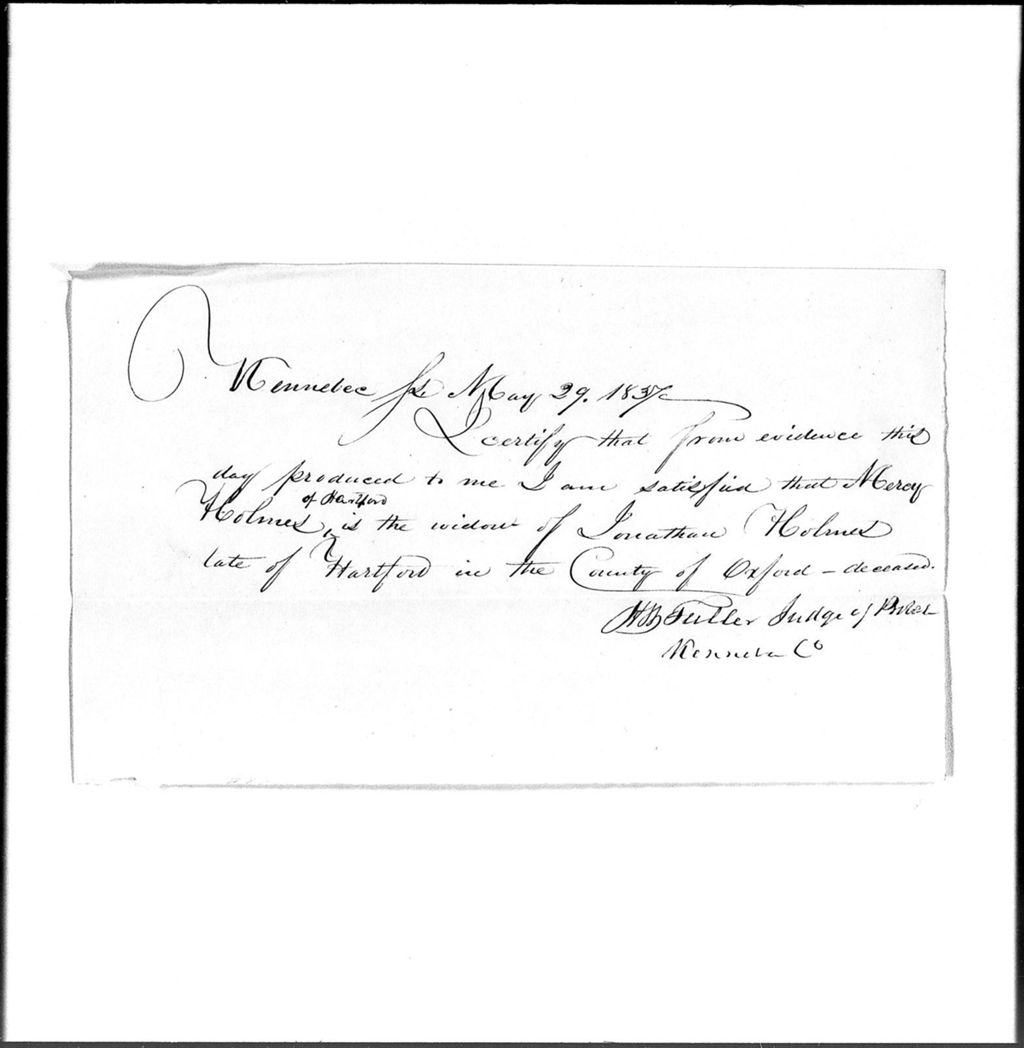 Kennebec ss May 29. 1837
I certify that from evidence this
day produced to me I am satisfied that Mercy
of Hartford
Holmes, is the widow of Jonathan Holmes
late of Hartford in the County of Oxford – deceased.
H B Fuller Judge of Probat
Kennebec Co